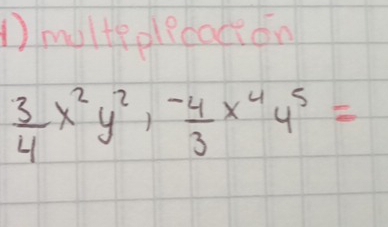 1) multiplicación
3/4 x² y² , -4/3 x⁴ y⁵ =